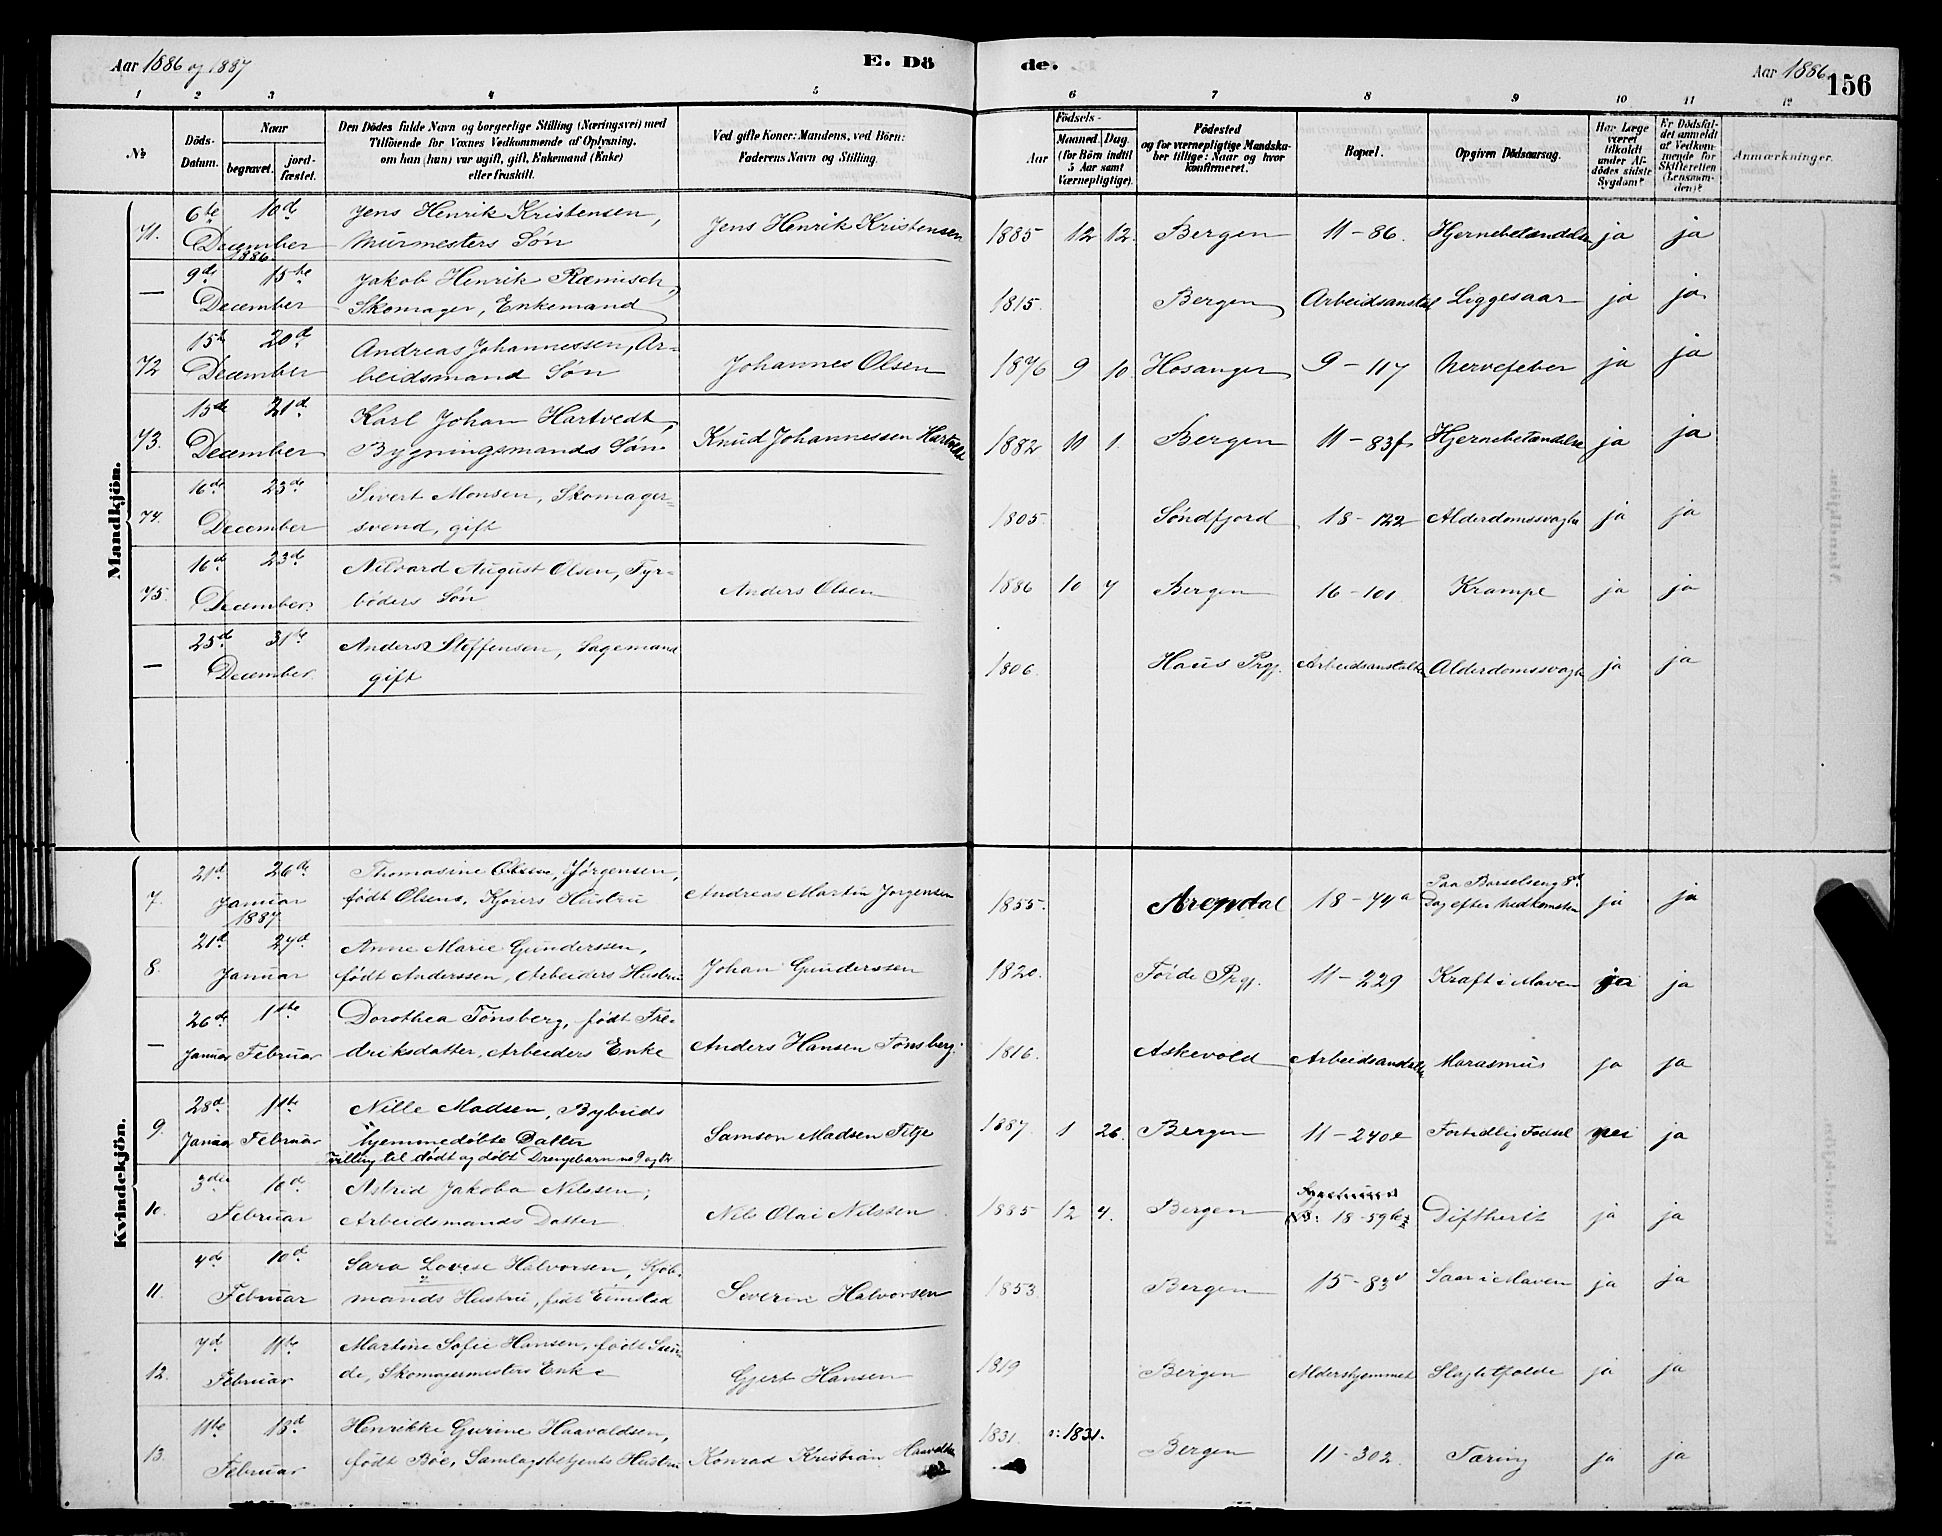 Aar 1886 og 1887
E. Dö
de.
Aar 1886
156
1 2 3 4 5 6 7 8 9 10 11 12
No
Döds-
Datum.
Naar
begravet.
jord-
fæstet.
Den Dödes fulde Navn og borgerlige Stilling (Næringsvei) med
Tilföiende for Voxnes Vedkommende af Oplysning,
om han (hun) var ugift, gift, Enkemand (Enke)
eller fraskilt.
Ved gifte Koner: Mandens, ved Börn:
Faderens Navn og Stilling.
Födsels-
Aar
Maaned.
Dag.
(for Börn indtil
5 Aar samt
Værnepligtige).
Födested
og for værnepligtige Mandska-
ber tillige: Naar og hvor
konfirmeret.
Bopæl.
Opgiven Dödsaarsag.
Har Læge
været
tilkaldt
under Af-
dödes sidste
Sygdom?
Er Dödsfal-
det anmeldt
af Vedkom-
mende for
Skifteretten
(Lensman-
den)?
Anmærkninger.
Mandkjön.
71. 6te 10de Jens Henrik Kristensen, Jens Henrik Kristensen 1885 12 12. Bergen 11-86. Hjernebetændelse ja ja
December 1886 Murmesters Søn
— 9de 15te Jakob Henrik Ræmisch, 1815. Bergen Arbeidsanstal Liggesaar ja ja
December Skomager, Enkemand
72 15de 20de Andreas Johannessen, Ar- Johannes Olsen 1876 9 10. Hosanger 9-117 Nervefeber ja ja
December beidsmand Søn
73. 15de 21de Karl Johan Hartvedt, Knud Johannessen Hartvedt 1882 11 1. Bergen 11-83f Hjernebetændelse ja ja
December Bygningsmands Søn
74. 16de 23de Sivert Monsen, Skomager- 1805. Søndfjord 18-122 Alderdomssvaghe ja ja
December svend, gift
75. 16de 23de August Olsen, Fyr- Anders Olsen 1886 10 7 Bergen 16-101 Krampe ja ja
December bøders Søn
— 25de 31te Anders Steffensen, Sagemand 1806. Haus Prgj. Arbeidsanstalten Alderdomssvaghe ja ja
December gift
Kvindekjön.
7. 21de 26de Thomasine Olsen, Jørgensen, Andreas Martin Jørgensen 1855. Arendal 18-74a Paa Barselseng 8de
Januar 1887 født Olsens, Kjørers Hustru Dag efter Nedkomsten ja ja
8. 21de 27de Anne Marie Gunderssen, Johan Gunderssen 1820. Førde Prgj. 11-229 Kræft i Maven ja ja
Januar født Anderssen, Arbeiders Hustru
— 26de 1ste Dorothea Tønsberg, født Fre- Anders Hansen Tønsberg. 1816. Askevold Arbeidsanstalten Marasmus ja ja
Januar Februar driksdatter, Arbeiders Enke
9. 28de 1ste Nille Madsen, Bybuds Samson Madsen 1887. 1 26. Bergen 11-240e Fortidlig Fødsel nei ja
Januar Februar hjemmedøbte Datter
Tvilling til dødt og døbt Drengebarn no 9
10. 3die 10de Astrid Jakoba Nilssen, Nils Olai Nilssen 1885 12 4. Bergen Sygehuset Diftherit ja ja
Februar Arbeidsmands Datter 18-59
11. 4de 10de Sara Lovise Halvorsen, Kjøb- Severin Halvorsen 1853. Bergen 15-83d Saar i Maven ja ja
Februar mands Hustru, født Eimstad
12. 7de 11te Martine Sofie Hansen, født Sun- Gjert Hansen 1819 Bergen Aldershjemmet Slagtilfælde ja ja
Februar de, Skomagermesters Enke
13. 11te 18de Henrikke Gurine Haavaldsen, Konrad Kristian 1831. o: 1831. Bergen 11-302. Tæring ja ja
Februar født Böe, Samlagsbetjents Hustru